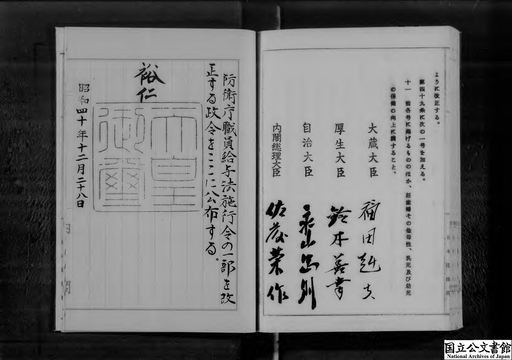 ように改正する。
第四十九条に次の一号を加える。
十一 前各号に掲げるもののほか、妊産婦その他母性、乳児及び幼児
の保健の向上に関すること。
大蔵大臣 福田赳夫
厚生大臣 鈴木善幸
自治大臣 永山忠則
内閣総理大臣 佐藤榮作
防衛庁職員給与法施行令の一部を改
正する政令をここに公布する。
裕仁
天皇
御璽
昭和四十年十二月二十八日
国立公文書館
National Archives of Japan